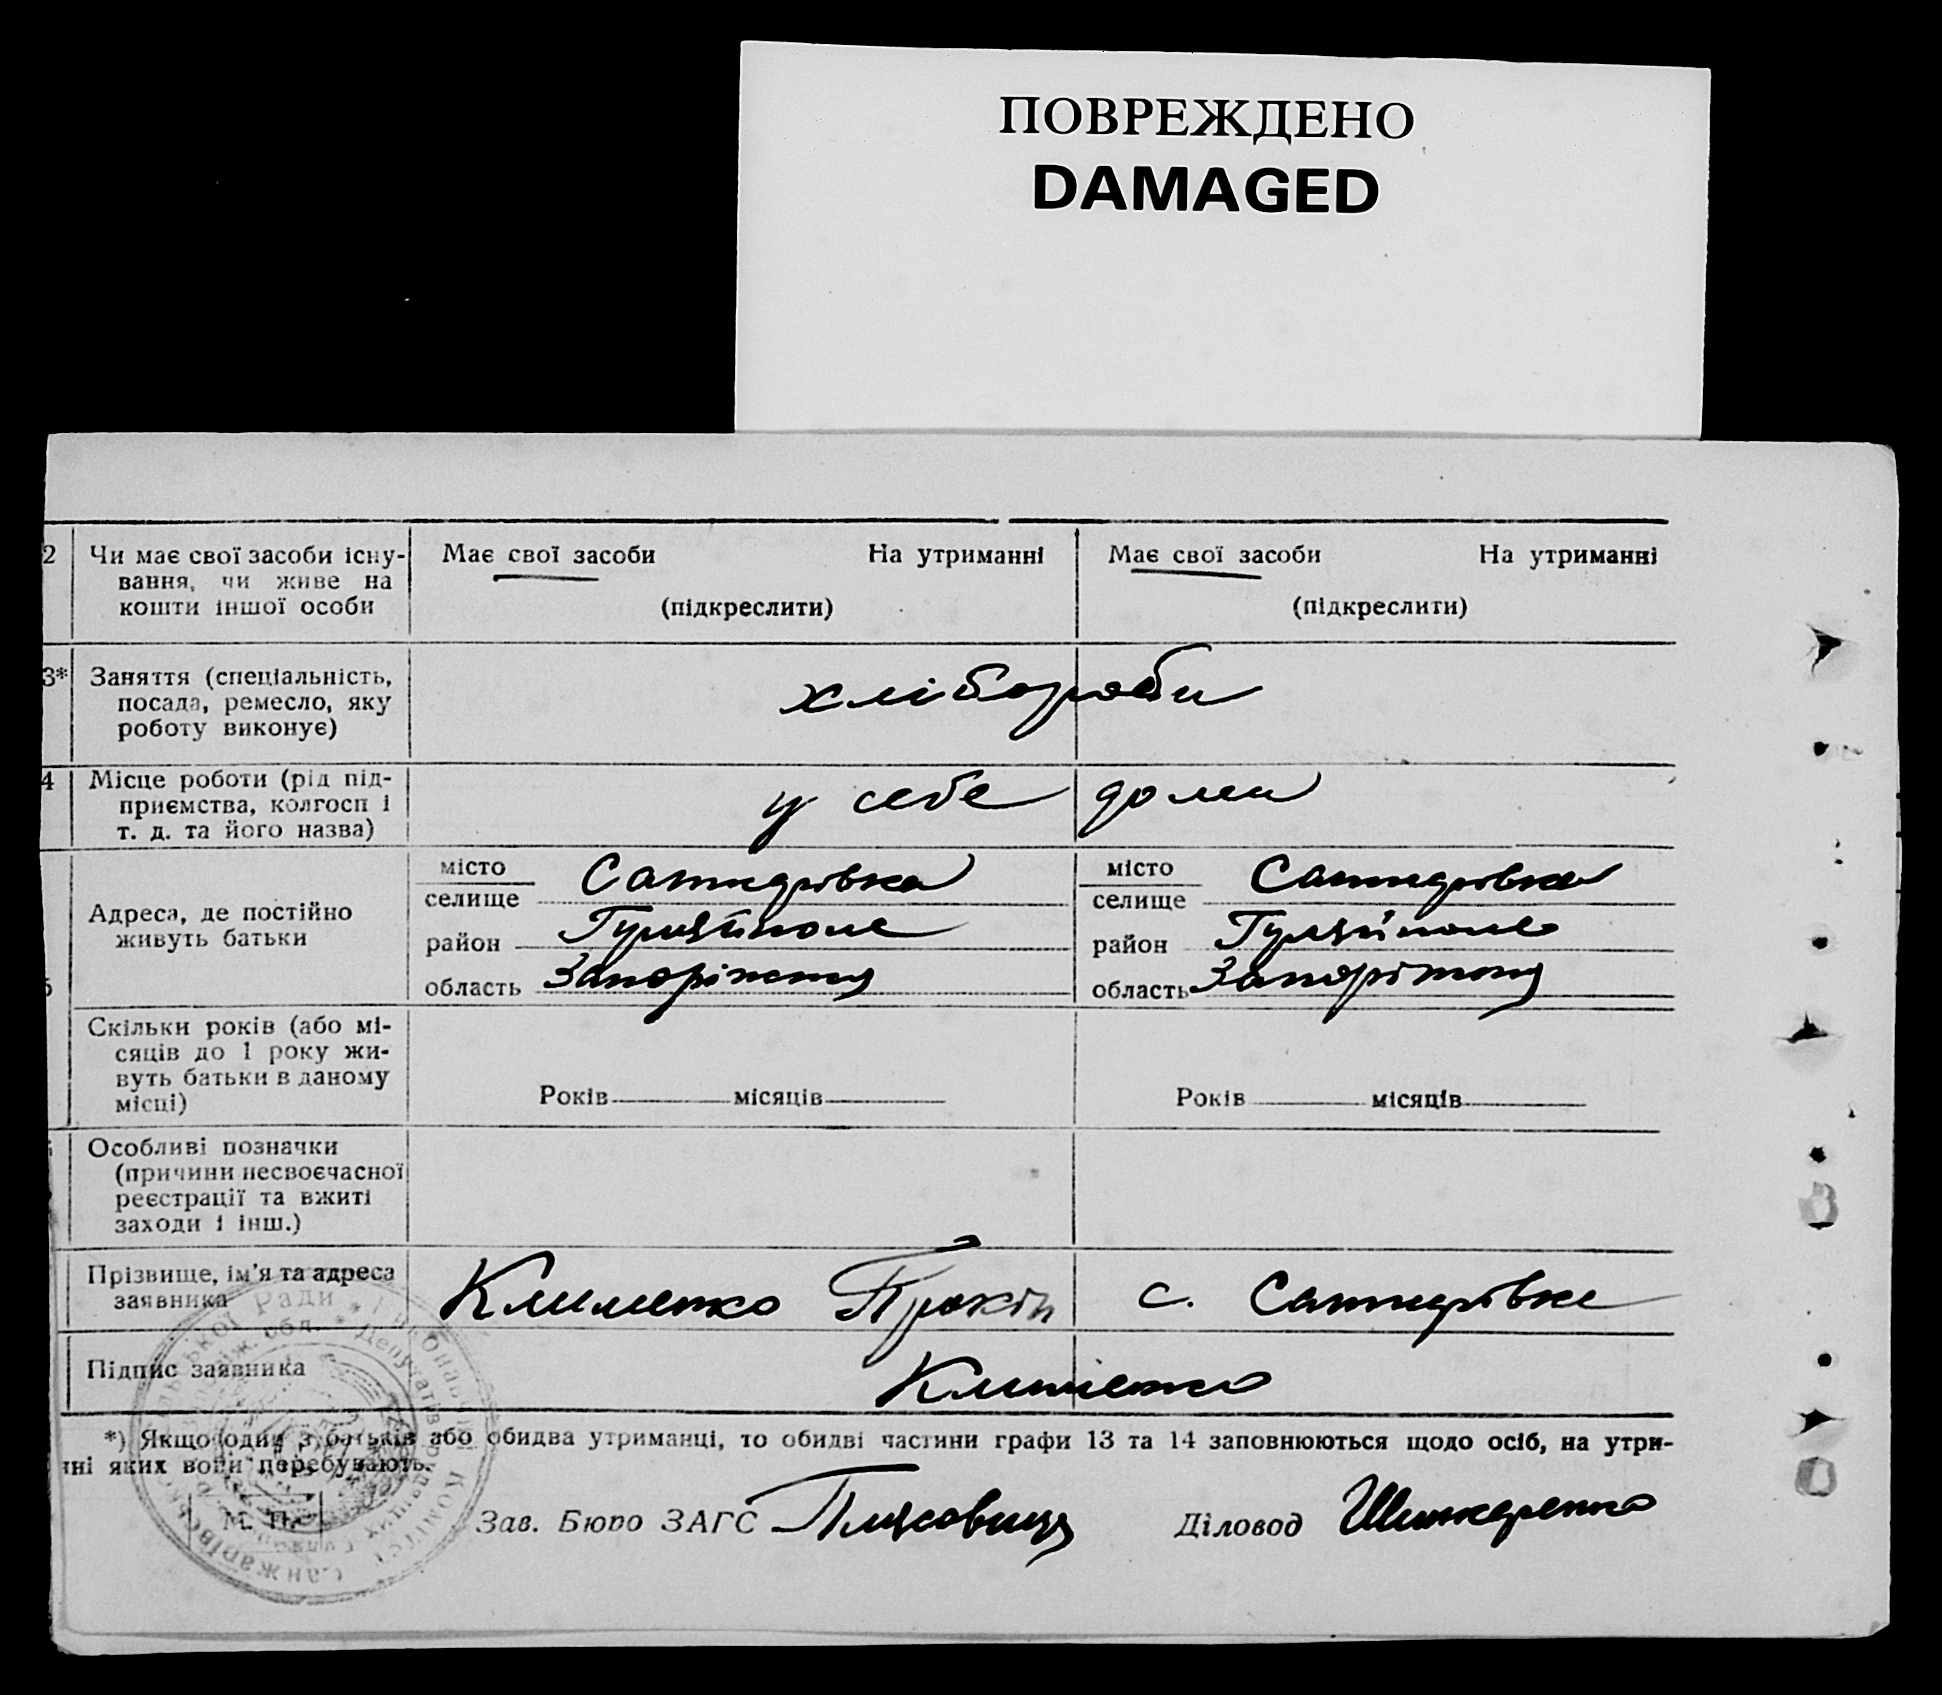 ПОВРЕЖДЕНО
DAMAGED
2 Чи має свої засоби існу-
вання, чи живе на
кошти іншої особи
Має свої засоби На утриманні
(підкреслити)
Має свої засоби На утриманні
(підкреслити)
3* Заняття (спеціальність,
посада, ремесло, яку
роботу виконує)
хлібороби
4 Місце роботи (рід під-
приємства, колгосп і
т. д. та його назва)
у себе дома
Адреса, де постійно
живуть батьки
місто
селище
район Гуляйполе
область Запоріжжя
місто
селище
район Гуляйполе
область Запоріжжя
Скільки років (або мі-
сяців до 1 року жи-
вуть батьки в даному
місці)
Років місяців
Років місяців
Особливі позначки
(причини несвоєчасної
реєстрації та вжиті
заходи і інш.)
Прізвище, ім'я та адреса
заявника
Клименко Прокіп с.
Підпис заявника
Клименко
*) Якщо один з батьків або обидва утриманці, то обидві частини графи 13 та 14 заповнюються щодо осіб, на утри-
нні яких вони перебувають.
М. П.
Зав. Бюро ЗАГС
Діловод Шинкаренко